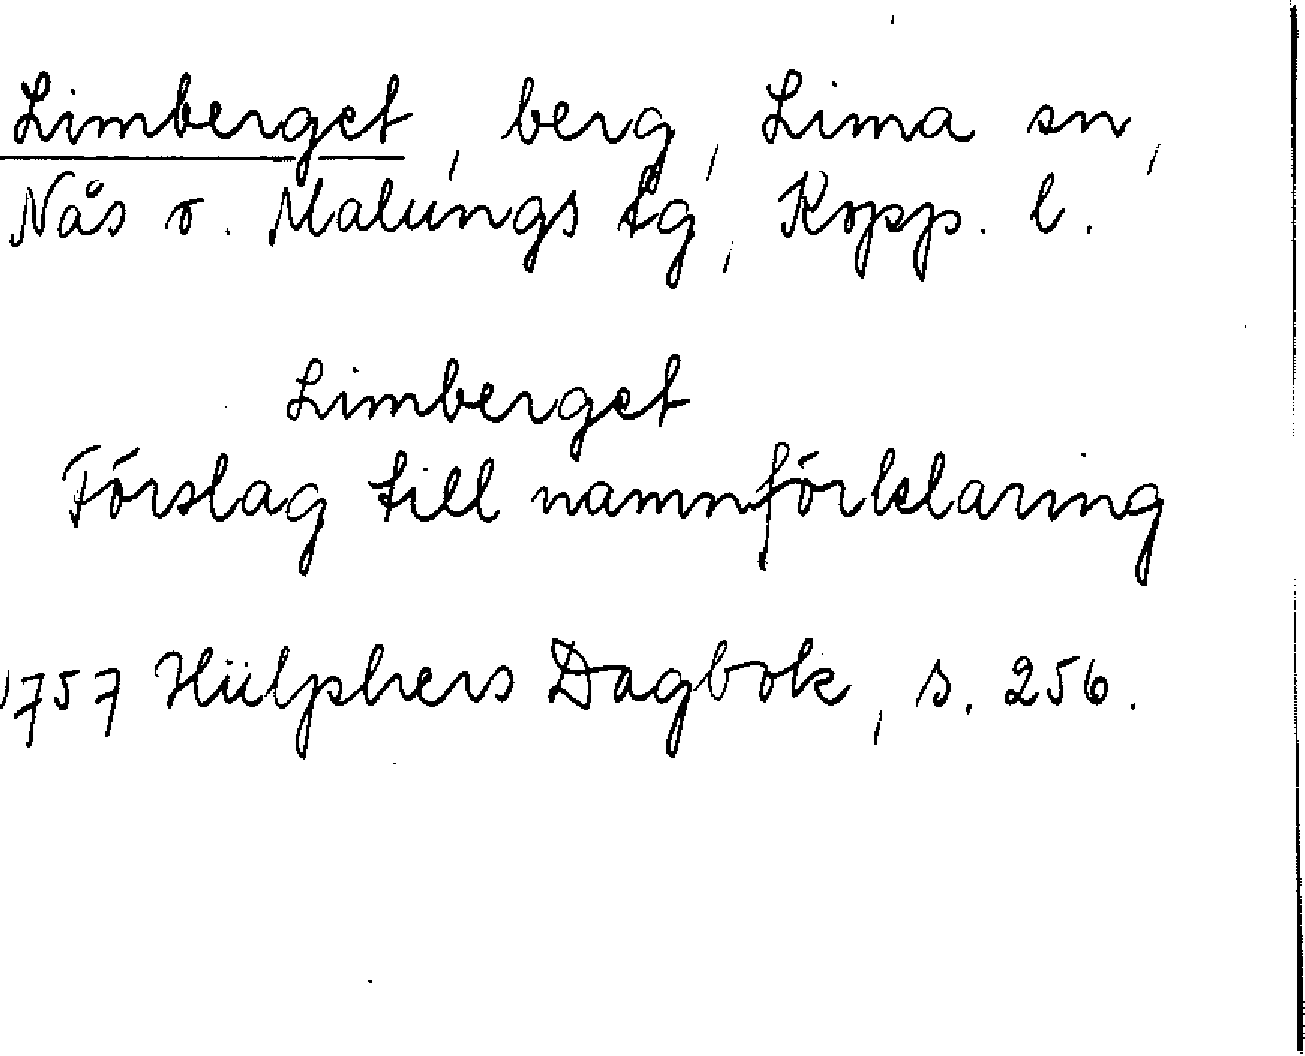 Limberget, berg, Lima sn,
Nås o. Malungs tg, Kopp. l.
Limberget
Förslag till namnförklaring
1757 Hülphers Dagbok, s. 256.